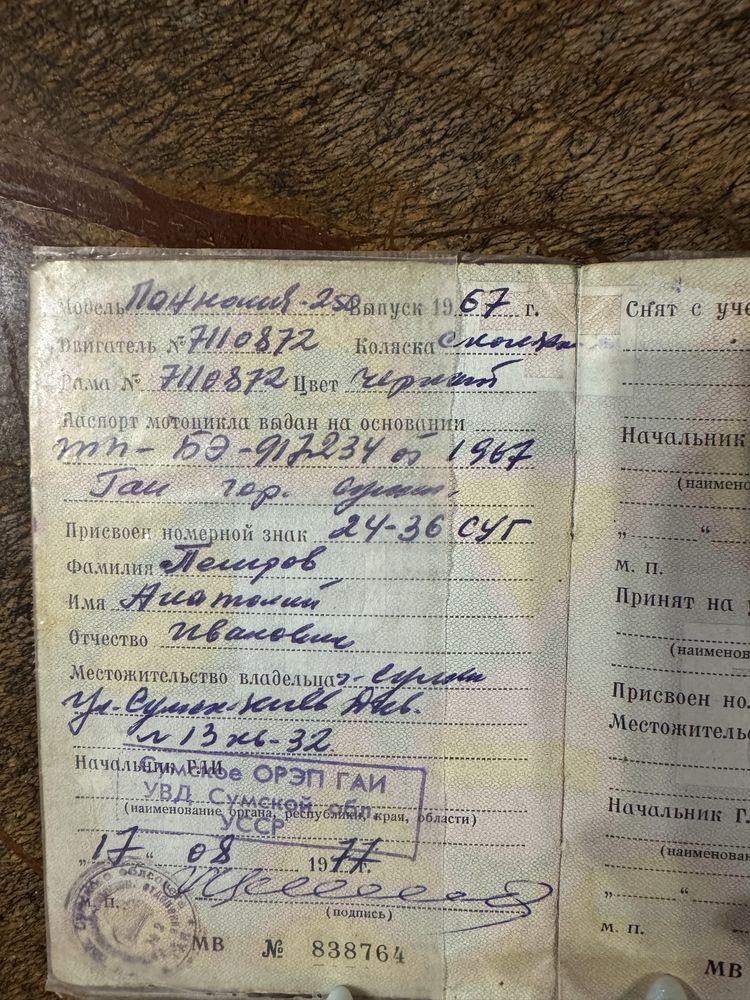 Модель Паннония-250 Выпуск 19 67 г.
Двигатель № 7110872 Коляска
Рама № 7110872 Цвет черный
Паспорт мотоцикла выдан на основании
тп-БЭ-917234 от 1967
Гаи гор. Сумы.
Присвоен номерной знак 24-36 СУГ
Фамилия Петров
Имя Анатолий
Отчество Иванович
Местожительство владельца г. Сумы
ул. Сумск-Киев Див.
13 кв-32
Начальник ГАИ
Сумское ОРЭП ГАИ
УВД Сумской обл.
УССР
(наименование органа, республики, края, области)
„17“ 08 1977г.
М. П.
(подпись)
МВ № 838764
Снят с уче
Начальник
(наимено
„ “
м. п.
Принят на
(наименов
Присвоен но
Местожительс
Начальник Г
(наименован
„ “
м. п.
МВ